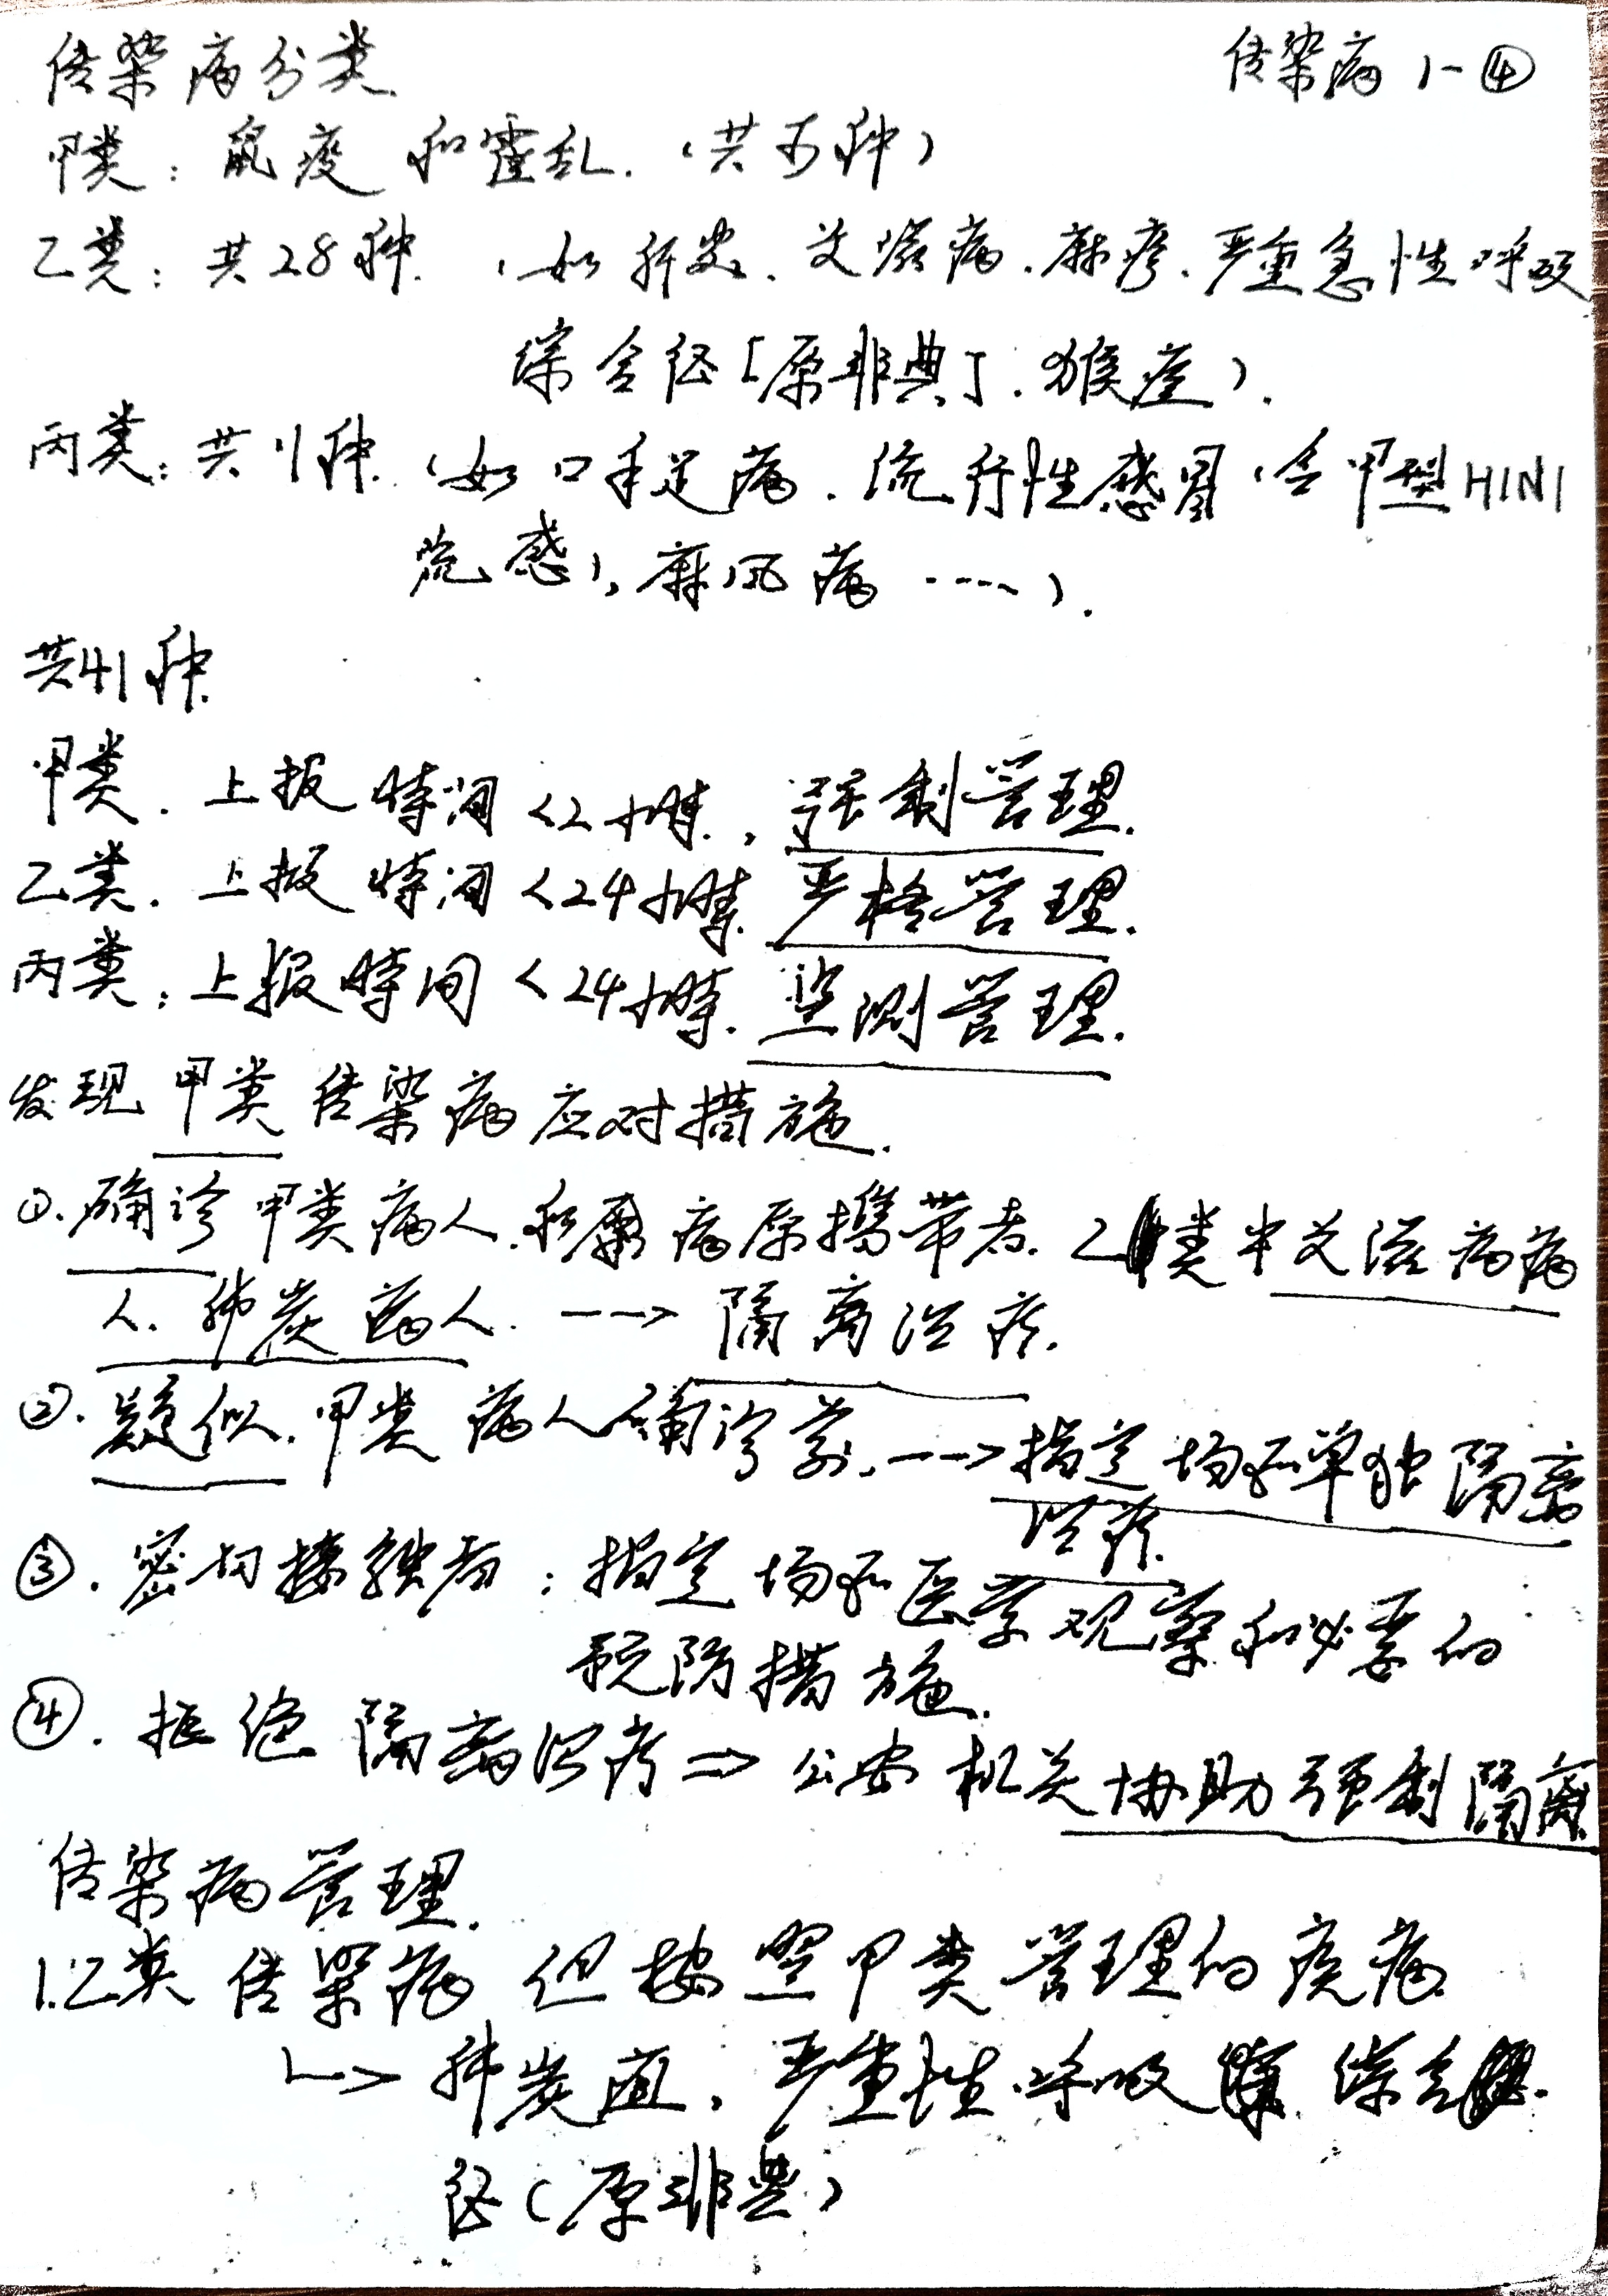 传染病分类
传染病 1-④
甲类：鼠疫和霍乱.（共两种）
乙类：共28种.（如肝炎、艾滋病、麻疹、严重急性呼吸
综合征[原非典]、猴痘）.
丙类：共11种.（如口手足病、流行性感冒（含甲型H1N1
流感）、麻风病……）.
共41种.
甲类.上报时间<2小时.,强制管理.
乙类.上报时间<24小时.严格管理.
丙类：上报时间<24小时.监测管理.
发现甲类传染病应对措施.
①.确诊甲类病人.和病原携带者.乙类中艾滋病病
人.肺炭病人.-->隔离治疗.
②.疑似.甲类病人确诊前.-->指定场所单独隔离
治疗.
③.密切接触者：指定场所医学观察和必要的
预防措施.
④.拒绝隔离治疗=>公安机关协助强制隔离.
传染病管理.
1.乙类传染病但按照甲类管理的疾病
↳>肺炭疽,严重性呼吸综合
征（原非典）